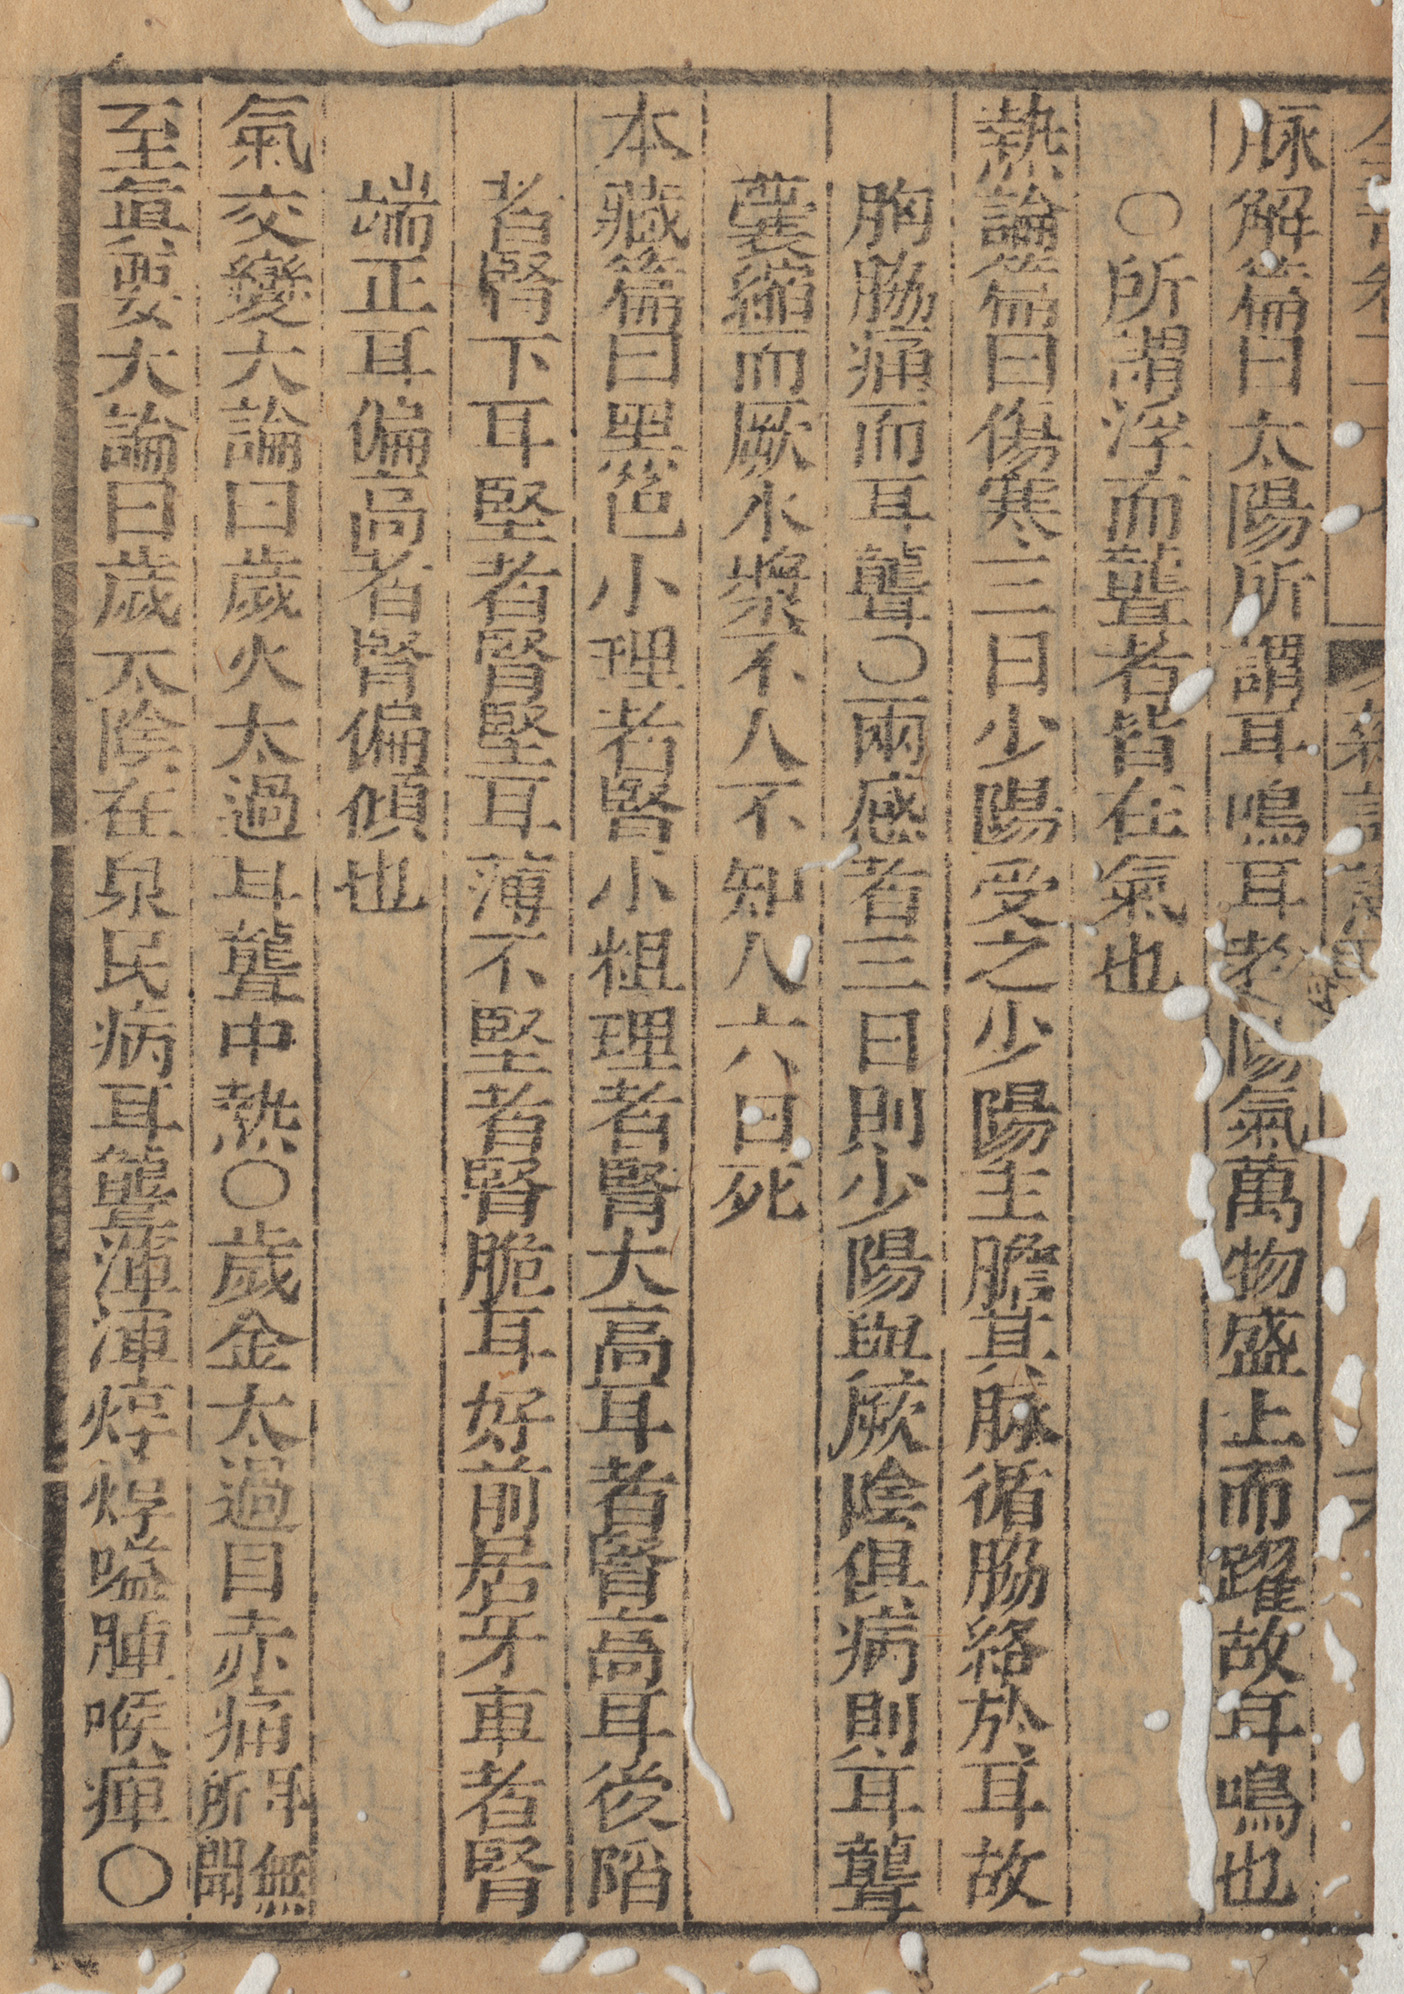 脉解篇曰太陽所謂耳鳴耳者陽氣萬物盛上而躍故耳鳴也
○所謂浮而聾者皆在氣也
熱論篇曰傷寒三日少陽受之少陽主膽其脉循脇絡於耳故
胸脇痛而耳聾○兩感者三日則少陽與厥陰俱病則耳聾
囊縮而厥水漿不入不知人六日死
本藏篇曰黑色小理者腎小粗理者腎大高耳者腎高耳後陷
者腎下耳堅者腎堅耳薄不堅者腎脆耳好前居牙車者腎
端正耳偏高者腎偏傾也
氣交變大論曰歲火太過耳聾中熱○歲金太過目赤痛耳無所聞
至眞要大論曰歲太陰在泉民病耳聾渾渾焞焞嗌腫喉痺○